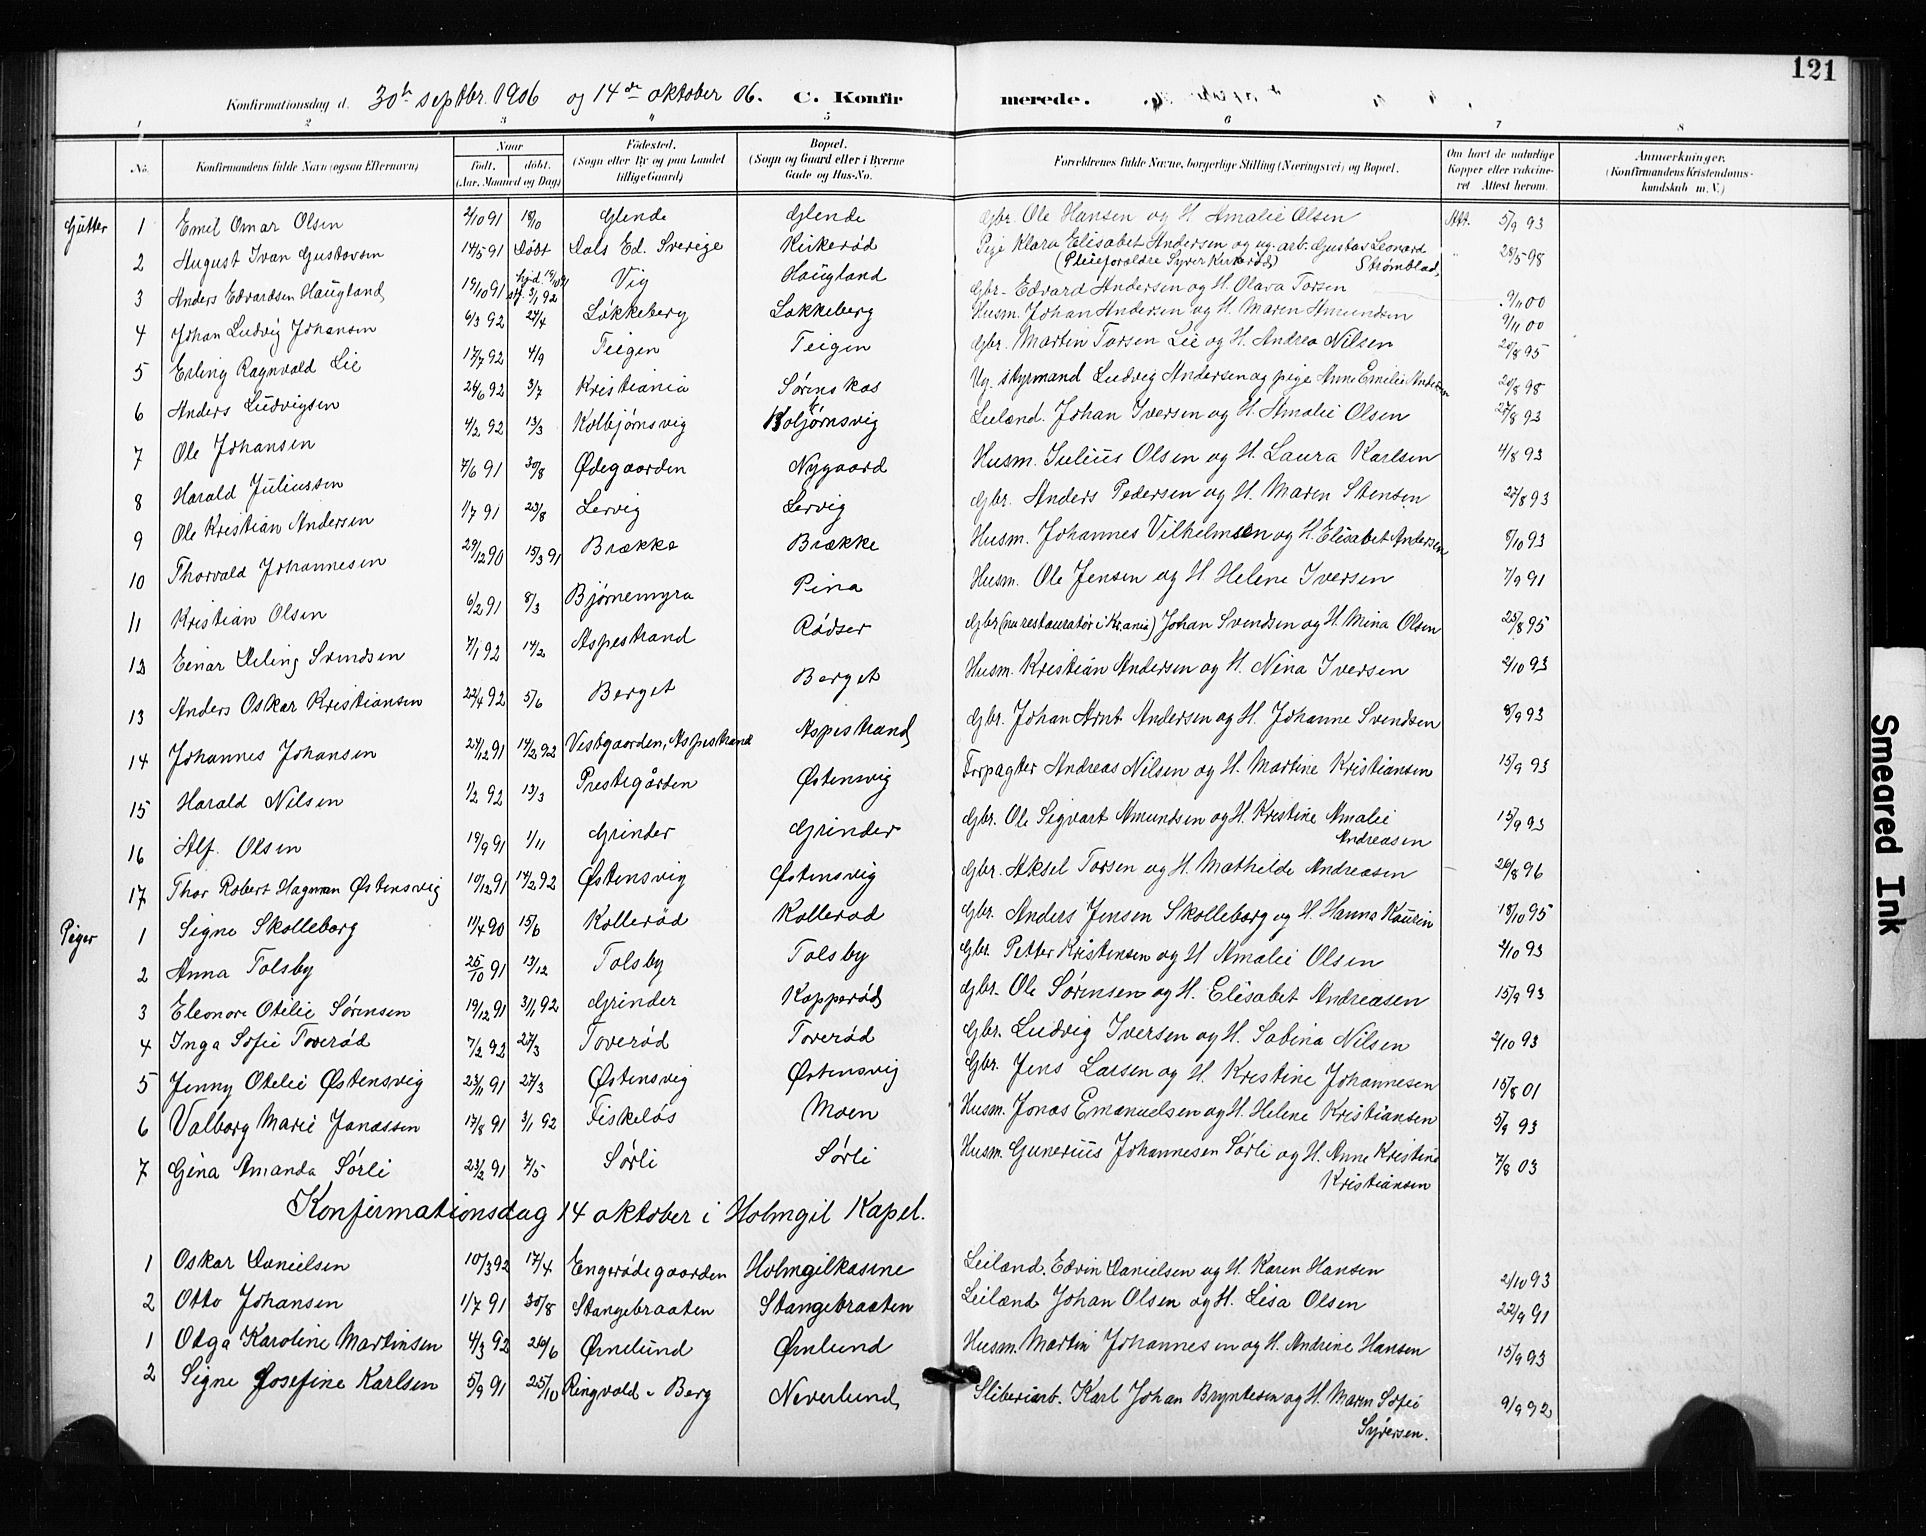 121
Konfirmationsdag d. 30te septbr. 1906 og 14de oktober 06. C. Konfirmerede.
1 2 3 4 5 6 7 8
No. Konfirmandens fulde Navn (ogsaa Efternavn) Naar født. døbt. (Aar, Maaned og Dag) Fødested. (Sogn eller By og paa Landet tillige Gaard) Bopæl. (Sogn og Gaard eller i Byerne Gade og Hus-No. Forældrenes fulde Navne, borgerlige Stilling (Næringsvei) og Bopæl. Om havt de naturlige Kopper eller vaccineret Attest herom. Anmærkninger. (Konfirmandens Kristendomskundskab m. V.)
Gutter 1 Emil Omar Olsen 2/10 91 18/10 Glende Glende Gbr. Ole Hansen og H. Amalie Olsen Att. 5/9 93
2 August Ivan Gustavsen 14/5 91 Døbt Dals Ed. Sverige Kirkerød Pige Klara Elisabet Andersen og ug. arb. Gustav Leonard Strømblad. (Pleieforældre Syver Kirkerød) " 28/5 98
3 Anders Edvardsen Haugland 19/10 91 hjd. 19/10 91 st. 3/1 92 Vig Haugland Gbr. Edvard Andersen og H. Olava Torsen 9/11 00
4 Johan Ludvig Johansen 6/3 92 24/4 Løkkeberg Løkkeberg Husm. Johan Andersen og H. Maren Amundsen 9/11 00
5 Erling Ragnvald Lie 17/7 92 4/9 Teigen Teigen Gbr. Martin Torsen Lie og H. Andrea Nilsen 20/8 95
6 Anders Ludvigsen 24/6 92 3/7 Kristiania Sørenskas Ug. styrmand Ludvig Andersen og pige Anne Emilie Andersen 20/8 98
7 Ole Johansen 4/2 92 13/3 Kolbjørnsvig Kolbjørnsvig Leilænd. Johan Iversen og H. Amalie Olsen 27/8 93
8 Harald Juliussen 7/6 91 30/8 Ødegaarden Nygaard Husm. Julius Olsen og H. Laura Karlsen 4/8 93
9 Ole Kristian Andersen 1/7 91 23/8 Lervig Lervig Gbr. Anders Pedersen og H. Maren Stensen 27/8 93
10 Thorvald Johannesen 29/12 90 15/3 91 Brække Brække Husm. Johannes Vilhelmsen og H. Elisabet Andersen 8/10 93
11 Kristian Olsen 6/2 91 8/3 Bjørnemyra Pina Husm. Ole Jensen og H. Helene Iversen 7/9 91
12 Einar Erling Svendsen 7/1 92 14/2 Aspestrand Rødser Gbr (nu restauratør i Kr.ania) Johan Svendsen og H. Mina Olsen 25/8 95
13 Anders Oskar Kristiansen 22/4 92 5/6 Berget Berget Husm. Kristian Andersen og H. Nina Iversen 2/10 93
14 Johannes Johansen 24/12 91 14/2 92 Vestgaarden, Aspestrand Aspestrand Gbr. Johan Arnt Andersen og H. Johanne Svendsen 8/9 93
15 Harald Nilsen 1/2 92 13/3 Prestegården Østensvig Forpagter Andreas Nilsen og H. Martine Kristiansen 15/9 93
16 Alf Olsen 19/9 91 1/11 Grinder Grinder Gbr. Ole Sigvart Amundsen og H. Kristine Amalie Andreasen 15/9 93
17 Thor Robert Hagman Østensvig 10/12 91 14/2 92 Østensvig Østensvig Gbr. Aksel Torsen og H. Mathilde Andreasen 26/8 96
Piger 1 Signe Skolleborg 11/4 90 15/6 Kollerød Kollerød Gbr. Anders Jensen Skolleborg og H. Hanna Kaurin 18/10 95
2 Anna Tolsby 25/10 91 13/12 Tolsby Tolsby Gbr. Petter Kristensen og H Amalie Olsen 2/10 93
3 Eleonore Otelie Sørensen 19/12 91 31/1 92 Grinder Kopperød Gbr. Ole Sørensen og H. Elisabet Andreasen 15/9 93
4 Inga Sofie Toverød 7/2 92 27/3 Toverød Toverød Gbr. Ludvig Iversen og H. Sabina Nilsen 2/10 93
5 Jenny Otelie Østensvig 23/11 91 27/3 Østensvig Østensvig Gbr. Jens Larsen og H. Kristine Johannesen 15/8 01
6 Valborg Marie Jonassen 17/8 91 3/1 92 Fiskeløs Moen Husm. Jonas Emanuelsen og H. Helene Kristiansen 5/9 93
7 Gina Amanda Sørli 23/2 91 7/5 Sørli Sørli Husm. Gunerius Johannesen Sørli og H. Anne Kristine Kristiansen 7/8 03
Konfirmationsdag 14 oktober i Holmgil Kapel.
1 Oskar Danielsen 10/3 92 17/4 Engerødegaarden Holmgilkasene Leilænd. Edvin Danielsen og H. Karen Hansen 2/10 93
2 Otto Johansen 1/7 91 30/8 Stangebraaten Stangebraaten Leilænd Johan Olsen og H. Lisa Olsen 22/9 91
1 Olga Karoline Martinsen 4/3 92 26/6 Ørnelund Ørnlund Husm. Martin Johannesen og H. Andrine Hansen 15/9 93
2 Signe Josefine Karlsen 5/9 91 25/10 Ringvold i Berg Neverlund Sliberiarb. Karl Johan Bryntesen og H. Maren Sofie Syversen. 9/9 92
Smeared Ink